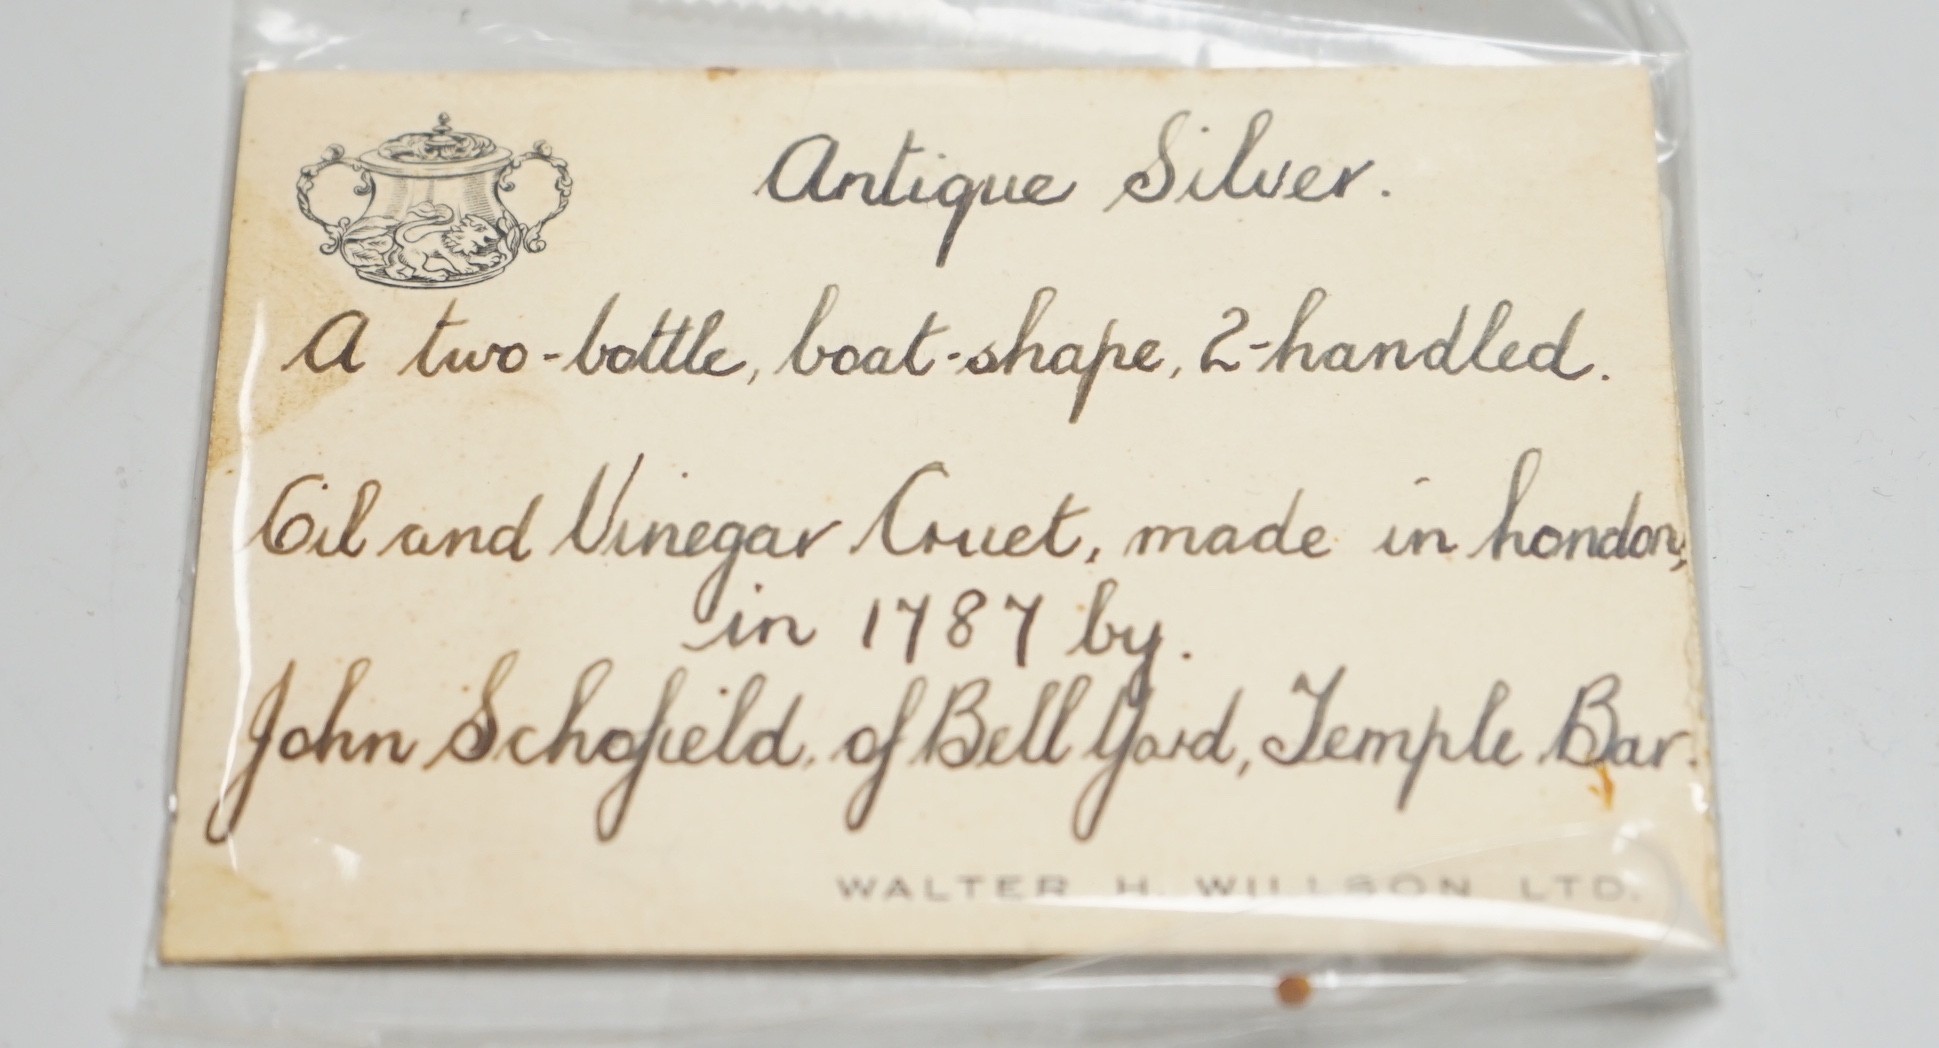 Antique Silver.
A two-bottle, boat-shape, 2-handled.
Oil and Vinegar Cruet, made in London,
in 1787 by.
John Schofield, of Bell Yard, Temple Bar.
WALTER H. WILLSON LTD.